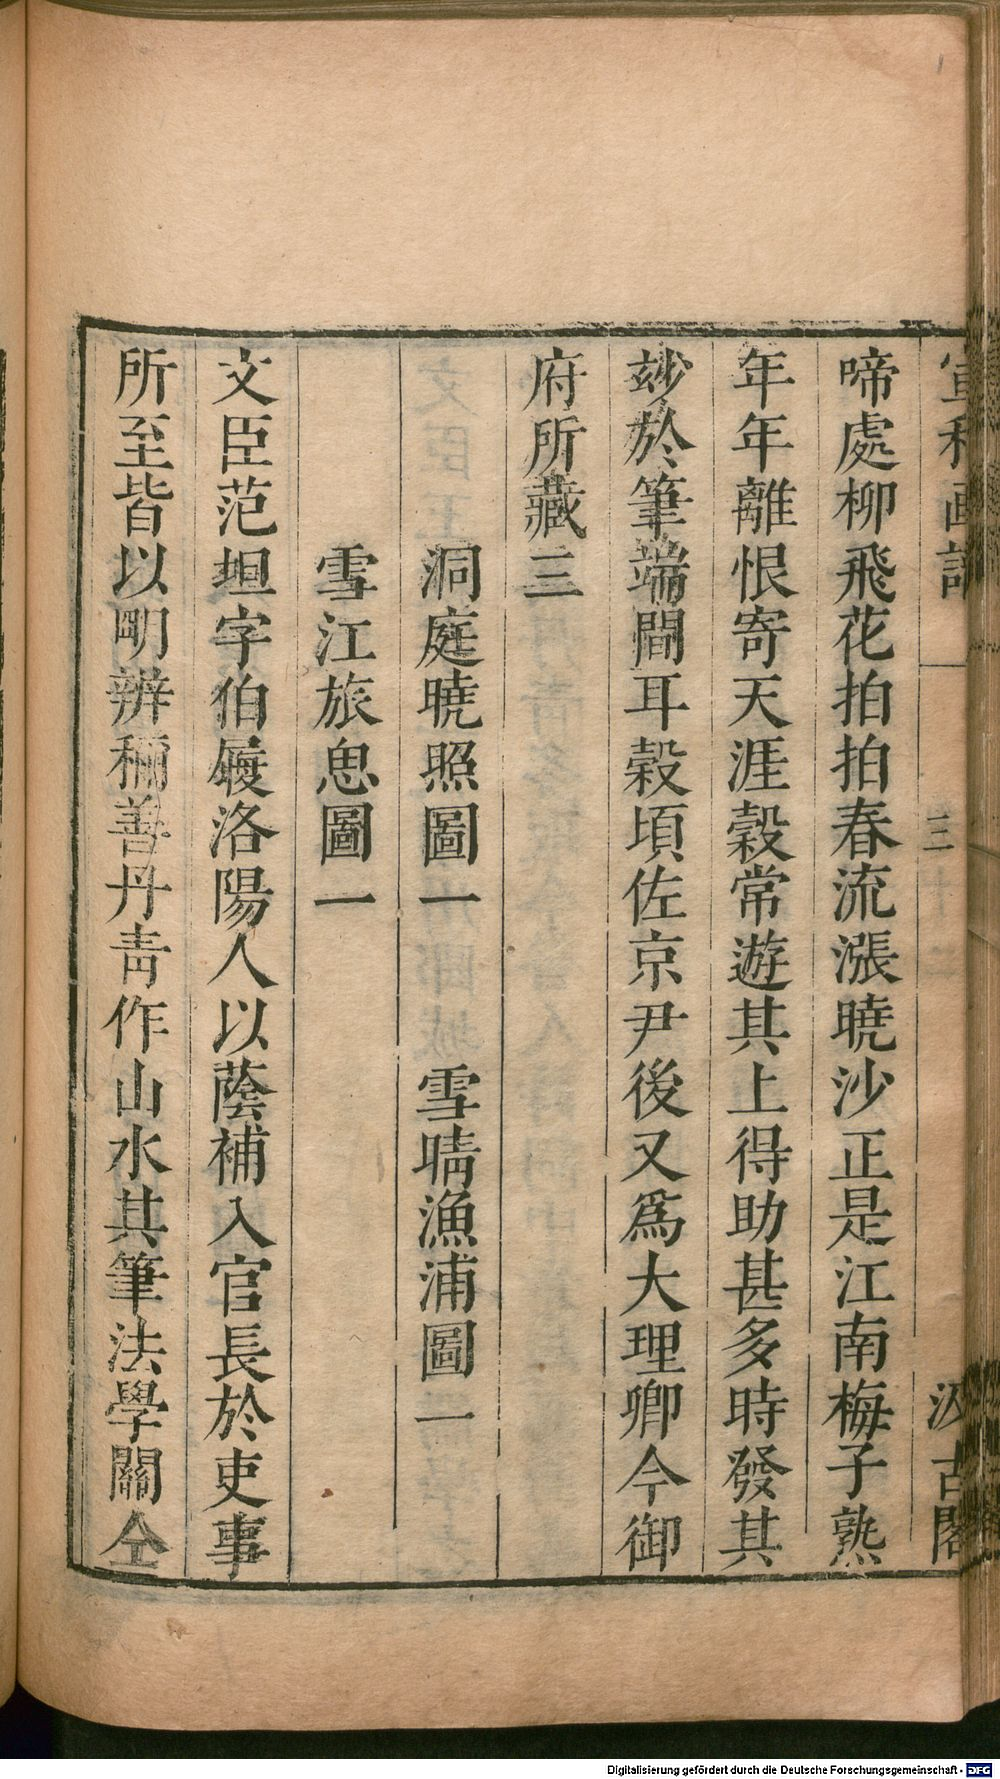 宣和画譜 三 汲古閣
啼處柳飛花拍拍春流漲曉沙正是江南梅子熟
年年離恨寄天涯穀常遊其上得助甚多時發其
玅於筆端間耳穀頃佐京尹後又爲大理卿今御
府所藏三
洞庭曉照圖一 雪晴漁浦圖一
雪江旅思圖一
文臣范坦字伯履洛陽人以蔭補入官長於吏事
所至皆以明辨稱善丹青作山水其筆法學關仝
Digitalisierung gefördert durch die Deutsche Forschungsgemeinschaft - DFG